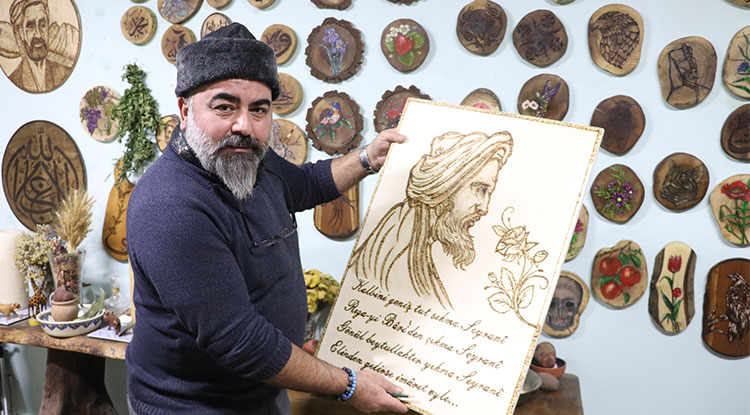 Kalbini geniş tut sıkma Seyranî
Rıza-yı Bâri'den çıkma Seyranî
Gönül beytullahtır yıkma Seyranî
Elinden gelirse imâret eyle...